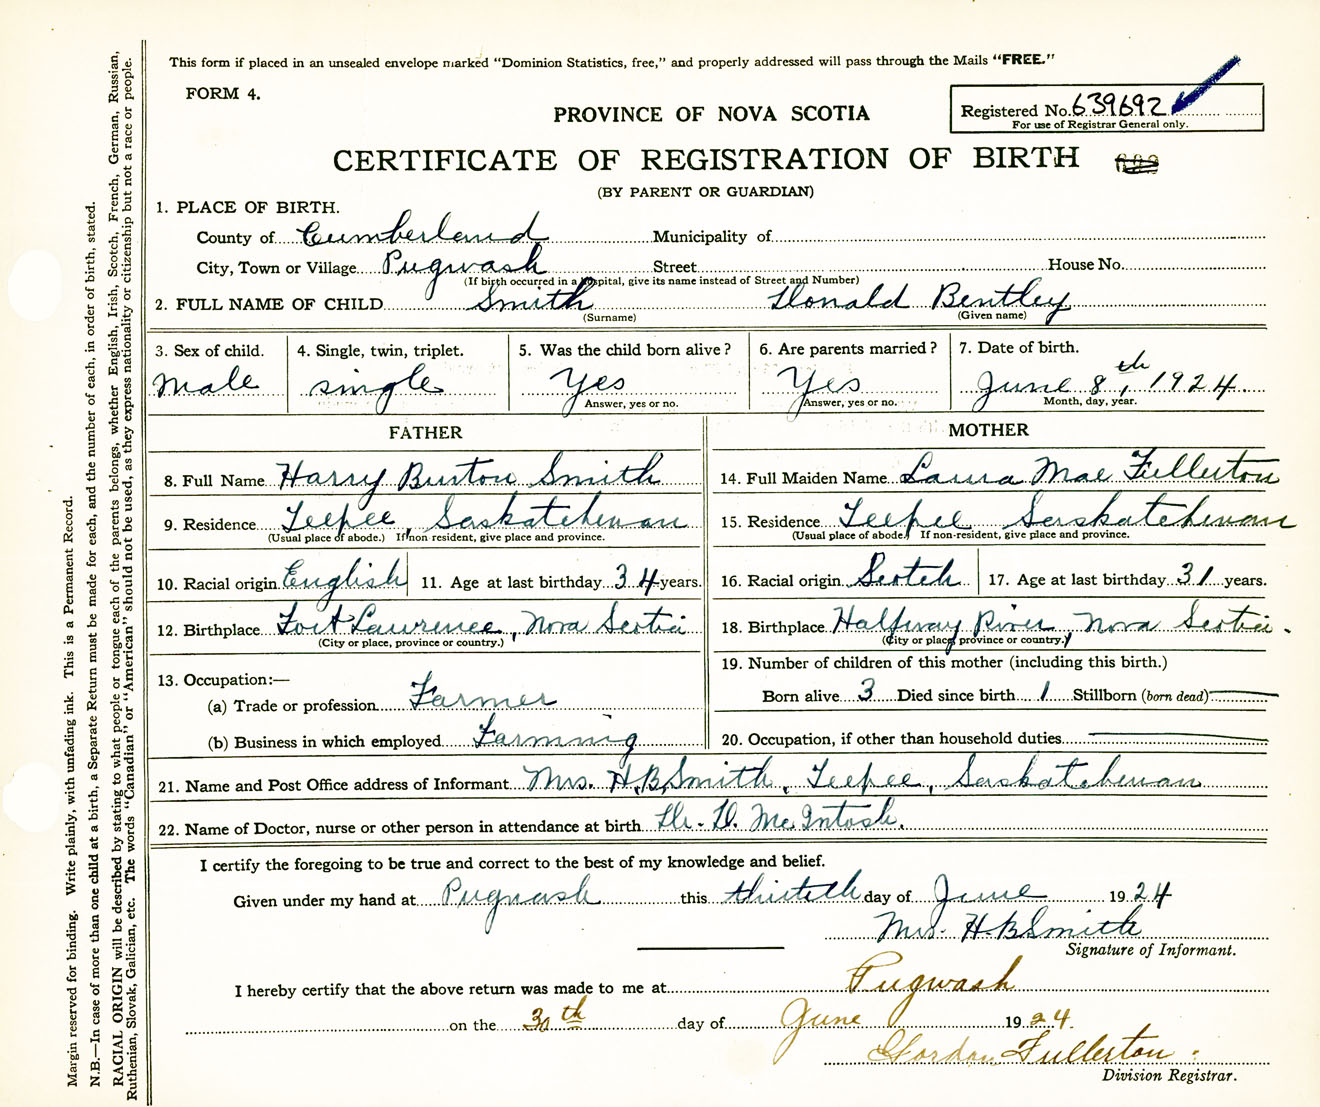 This form if placed in an unsealed envelope marked "Dominion Statistics, free," and properly addressed will pass through the Mails "FREE."
FORM 4.
PROVINCE OF NOVA SCOTIA
Registered No. 639692
For use of Registrar General only.
CERTIFICATE OF REGISTRATION OF BIRTH
(BY PARENT OR GUARDIAN)
1. PLACE OF BIRTH.
County of Cumberland Municipality of
City, Town or Village Pugwash Street House No.
(If birth occurred in a hospital, give its name instead of Street and Number)
2. FULL NAME OF CHILD Smith Donald Bentley
(Surname) (Given name)
3. Sex of child. 4. Single, twin, triplet. 5. Was the child born alive? 6. Are parents married? 7. Date of birth.
Male single Yes Yes June 8th, 1924
Answer, yes or no. Answer, yes or no. Month, day, year.
FATHER MOTHER
8. Full Name Harry Burton Smith 14. Full Maiden Name Laura Mae Fullerton
9. Residence Teepee, Saskatchewan 15. Residence Teepee Saskatchewan
(Usual place of abode.) If non-resident, give place and province. (Usual place of abode.) If non-resident, give place and province.
10. Racial origin English 11. Age at last birthday 34 years. 16. Racial origin Scotch 17. Age at last birthday 31 years.
12. Birthplace Fort Lawrence, Nova Scotia 18. Birthplace Halfway River, Nova Scotia.
(City or place, province or country.) (City or place, province or country.)
13. Occupation:— 19. Number of children of this mother (including this birth.)
(a) Trade or profession Farmer Born alive 3 Died since birth 1 Stillborn (born dead)
(b) Business in which employed Farming 20. Occupation, if other than household duties
21. Name and Post Office address of Informant Mrs. H.B. Smith, Teepee, Saskatchewan
22. Name of Doctor, nurse or other person in attendance at birth Dr. D. McIntosh.
I certify the foregoing to be true and correct to the best of my knowledge and belief.
Given under my hand at Pugwash this thirtieth day of June 1924
Mrs. H.B Smith
Signature of Informant.
I hereby certify that the above return was made to me at Pugwash
on the 30th day of June 1924.
Gordon Fullerton.
Division Registrar.
Margin reserved for binding. Write plainly, with unfading ink. This is a Permanent Record.
N.B.—In case of more than one child at a birth, a Separate Return must be made for each, and the number of each, in order of birth, stated.
RACIAL ORIGIN will be described by stating to what people or tongue each of the parents belongs, whether English, Irish, Scotch, French, German, Russian,
Ruthenian, Slovak, Galician, etc. The words "Canadian" or "American" should not be used, as they express nationality or citizenship but not a race or people.